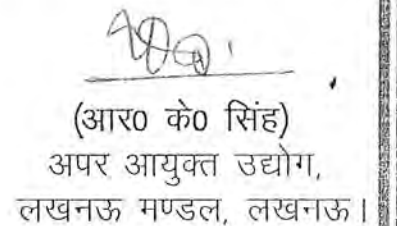 (आर० के० सिंह)
अपर आयुक्त उद्योग,
लखनऊ मण्डल, लखनऊ।